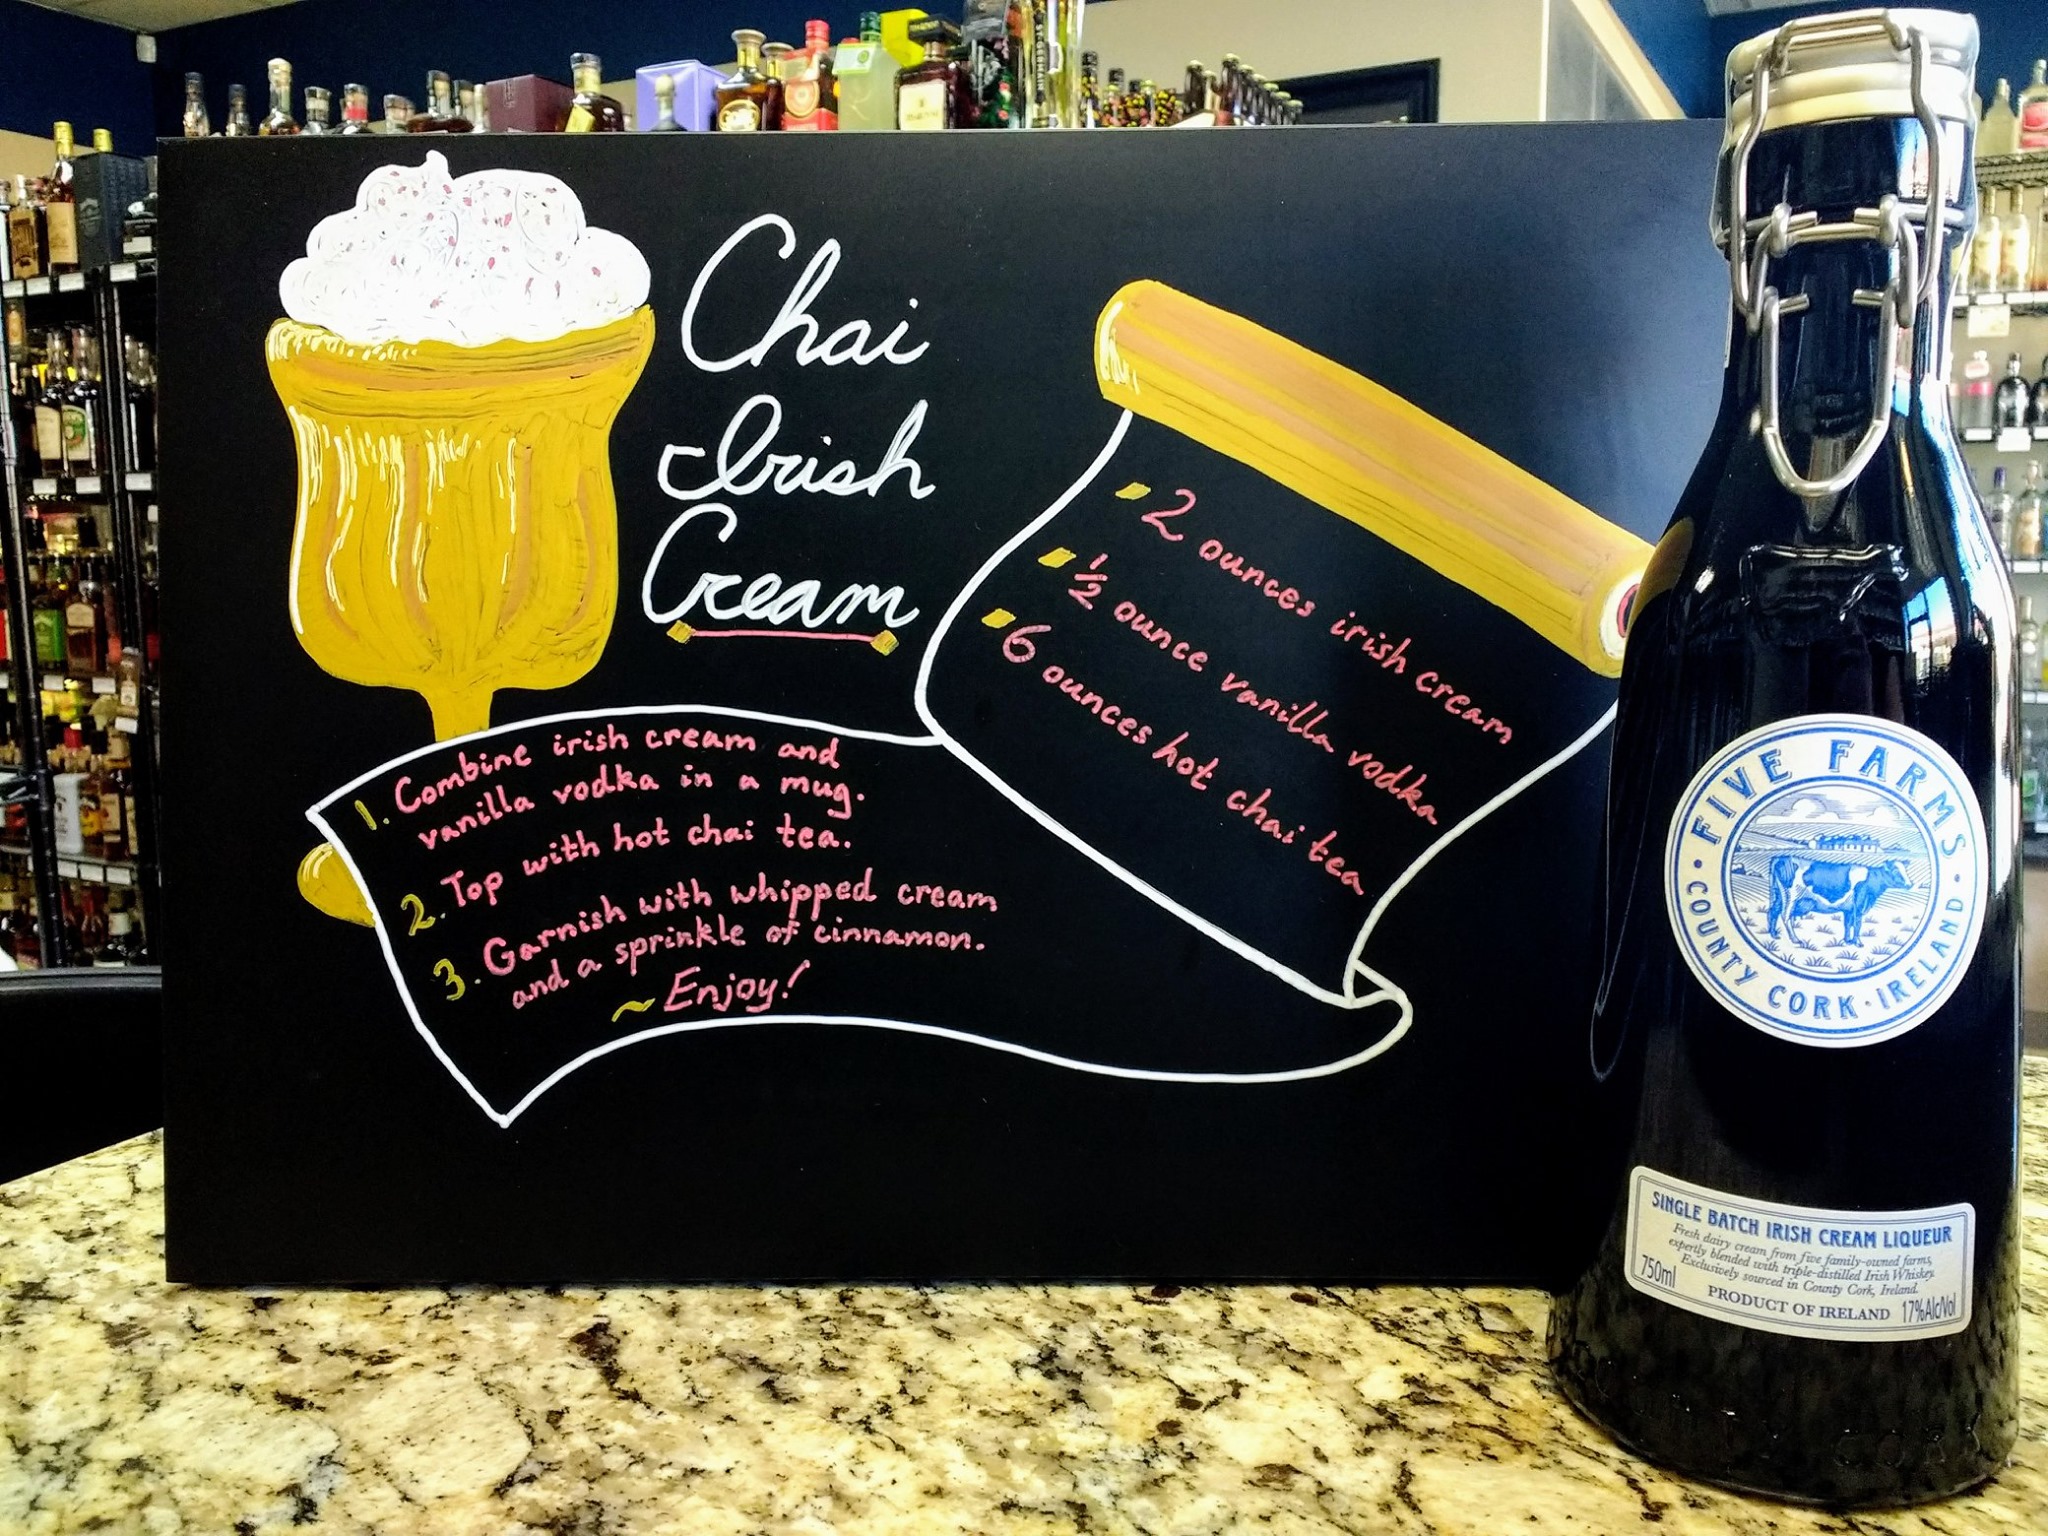 Chai
Irish
Cream
2 ounces irish cream
½ ounce vanilla vodka
6 ounces hot chai tea
1. Combine irish cream and
vanilla vodka in a mug.
2. Top with hot chai tea.
3. Garnish with whipped cream
and a sprinkle of cinnamon.
~ Enjoy!
FIVE FARMS
· COUNTY CORK · IRELAND ·
SINGLE BATCH IRISH CREAM LIQUEUR
Fresh dairy cream from five family-owned farms,
expertly blended with triple-distilled Irish Whiskey.
Exclusively sourced in County Cork, Ireland.
750ml
PRODUCT OF IRELAND 17%Alc/Vol